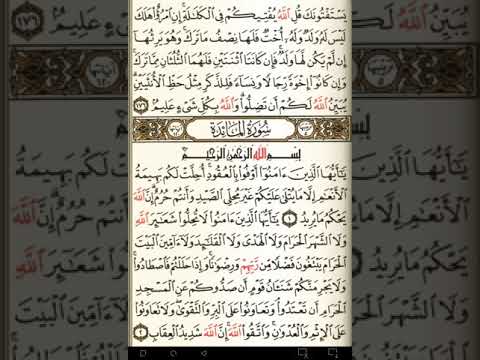 يَسْتَفْتُونَكَ قُلِ ٱللَّهُ يُفْتِيكُمْ فِى ٱلْكَلَٰلَةِ ۚ إِنِ ٱمْرُؤٌا۟ هَلَكَ
لَيْسَ لَهُۥ وَلَدٌ وَلَهُۥٓ أُخْتٌ فَلَهَا نِصْفُ مَا تَرَكَ ۚ وَهُوَ يَرِثُهَآ
إِن لَّمْ يَكُن لَّهَا وَلَدٌ ۚ فَإِن كَانَتَا ٱثْنَتَيْنِ فَلَهُمَا ٱلثُّلُثَانِ مِمَّا تَرَكَ ۚ
وَإِن كَانُوٓا۟ إِخْوَةً رِّجَالًا وَنِسَآءً فَلِلذَّكَرِ مِثْلُ حَظِّ ٱلْأُنثَيَيْنِ ۗ
يُبَيِّنُ ٱللَّهُ لَكُمْ أَن تَضِلُّوا۟ ۗ وَٱللَّهُ بِكُلِّ شَىْءٍ عَلِيمٌۢ ١٧٦
سُورَةُ المَائِدَةِ
بِسْمِ ٱللَّهِ ٱلرَّحْمَٰنِ ٱلرَّحِيمِ
يَٰٓأَيُّهَا ٱلَّذِينَ ءَامَنُوٓا۟ أَوْفُوا۟ بِٱلْعُقُودِ ۚ أُحِلَّتْ لَكُم بَهِيمَةُ
ٱلْأَنْعَٰمِ إِلَّا مَا يُتْلَىٰ عَلَيْكُمْ غَيْرَ مُحِلِّى ٱلصَّيْدِ وَأَنتُمْ حُرُمٌ ۗ إِنَّ ٱللَّهَ
يَحْكُمُ مَا يُرِيدُ ١ يَٰٓأَيُّهَا ٱلَّذِينَ ءَامَنُوا۟ لَا تُحِلُّوا۟ شَعَٰٓئِرَ ٱللَّهِ
وَلَا ٱلشَّهْرَ ٱلْحَرَامَ وَلَا ٱلْهَدْىَ وَلَا ٱلْقَلَٰٓئِدَ وَلَآ ءَآمِّينَ ٱلْبَيْتَ
ٱلْحَرَامَ يَبْتَغُونَ فَضْلًا مِّن رَّبِّهِمْ وَرِضْوَٰنًا ۚ وَإِذَا حَلَلْتُمْ فَٱصْطَادُوا۟ ۚ
وَلَا يَجْرِمَنَّكُمْ شَنَـَٔانُ قَوْمٍ أَن صَدُّوكُمْ عَنِ ٱلْمَسْجِدِ
ٱلْحَرَامِ أَن تَعْتَدُوا۟ ۘ وَتَعَاوَنُوا۟ عَلَى ٱلْبِرِّ وَٱلتَّقْوَىٰ ۖ وَلَا تَعَاوَنُوا۟
عَلَى ٱلْإِثْمِ وَٱلْعُدْوَٰنِ ۚ وَٱتَّقُوا۟ ٱللَّهَ ۖ إِنَّ ٱللَّهَ شَدِيدُ ٱلْعِقَابِ ٢